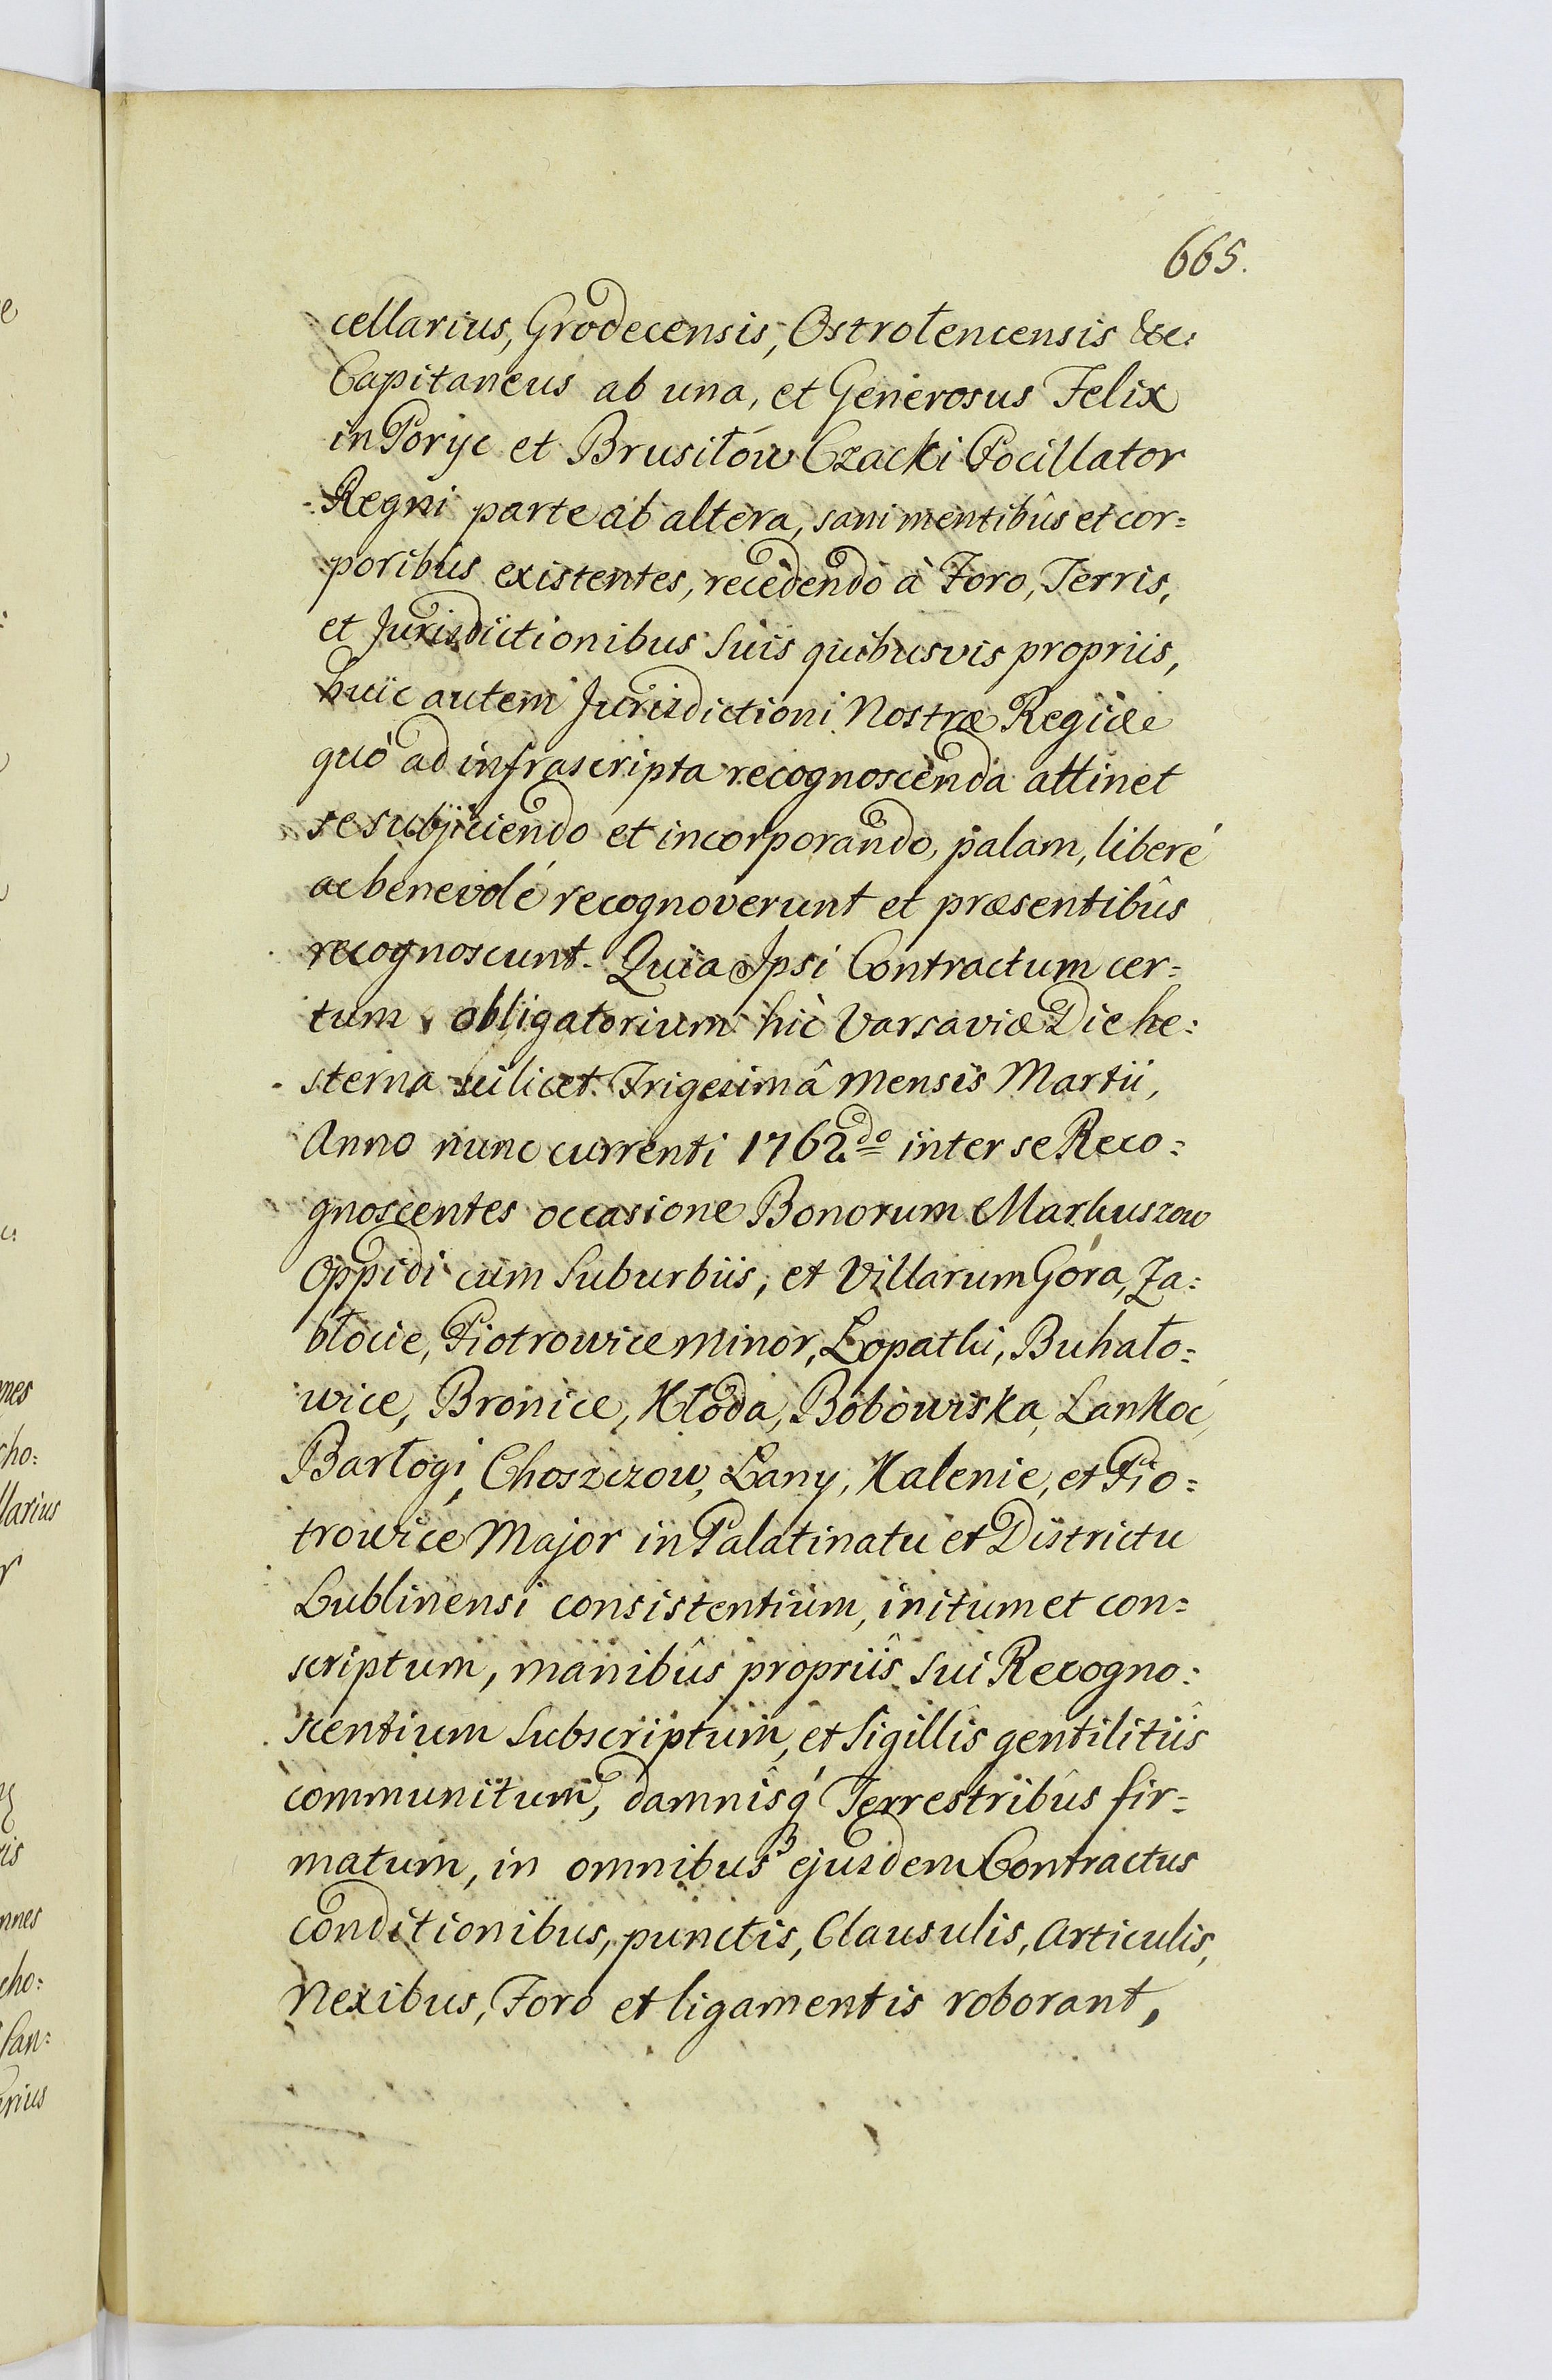 665.
cellarius, Grodecensis, Ostrołencensis &c:
Capitaneus ab una, et Generosus Felix
in Poryc et Brusiłów Czacki Pocillator
Regni parte ab altera, sani mentibûs et cor=
poribûs existentes, recedendo à Foro, Terris,
et Jurisdictionibus suis quibusvis propriis,
huic autem Jurisdictioni Nostræ Regiæ
quò ad infrascripta recognoscenda attinet
se subjiciendo et incorporando, palam, liberé
ac benevolé recognoverunt et præsentibûs
recognoscunt. Quia Ipsi Contractum cer=
tum obligatorium hic Varsaviæ Die he=
sterna scilicet Trigesimâ mensis Martii,
Anno nunc currenti 1762do inter se Reco=
gnoscentes occasione Bonorum Markuszow
Oppidi cum Suburbiis, et Villarum Góra, Za=
błocie, Piotrowice minor, Łopatki, Buhało=
wice, Bronice, Kłoda, Bobowiska, Łąkoć,
Barłogi, Choszczow, Łany, Kalenie, et Pio=
trowice Major in Palatinatu et Districtu
Lublinensi consistentium, initum et con=
scriptum, manibûs propriîs sui Recogno=
scentium subscriptum, et sigillîs gentilitiîs
communitum, damnîsq́ Terrestribûs fir=
matum, in omnibus ejusdem Contractus
conditionibus, punctis, Clausulis, Articulis,
Nexibus, Foro et ligamentis roborant,